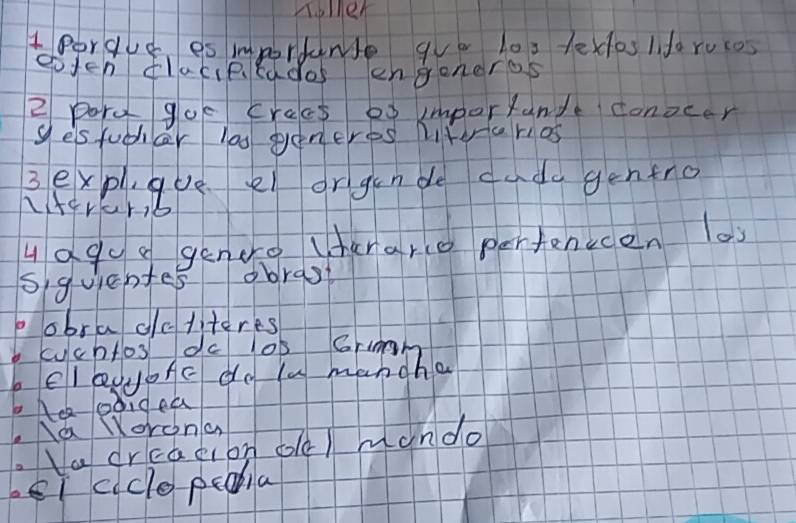 Taller
1 Porque es importante que los textos literarios
esten clacificados en generos
2 pora que crees es importante conocer
y estudiar los generos literarios
3 explique el origen de cada genero
literario
4 aque genero literario pertenecen los
siguientes obras:
• obra de titeres
• cuentos de los Grimm
• El quijote de la mancha
• la odicea
• la llorona
• La creacion del mundo
• El ciclopedia